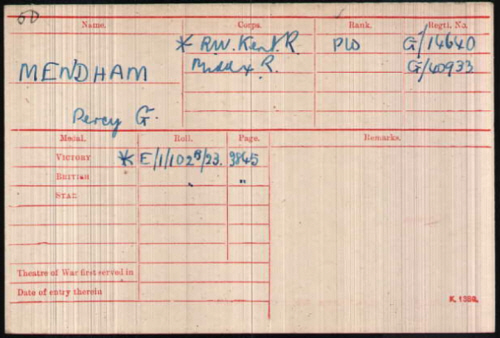 Name. Corps. Rank. Regtl. No.
* R.W. Kent. R. Pte G/14640
MENDHAM Midd'x R. G/40933
Percy G.
Medal. Roll. Page. Remarks.
VICTORY * E/1/102B/23. 9845
BRITISH " "
STAR
Theatre of War first served in
Date of entry therein
K. 1380.